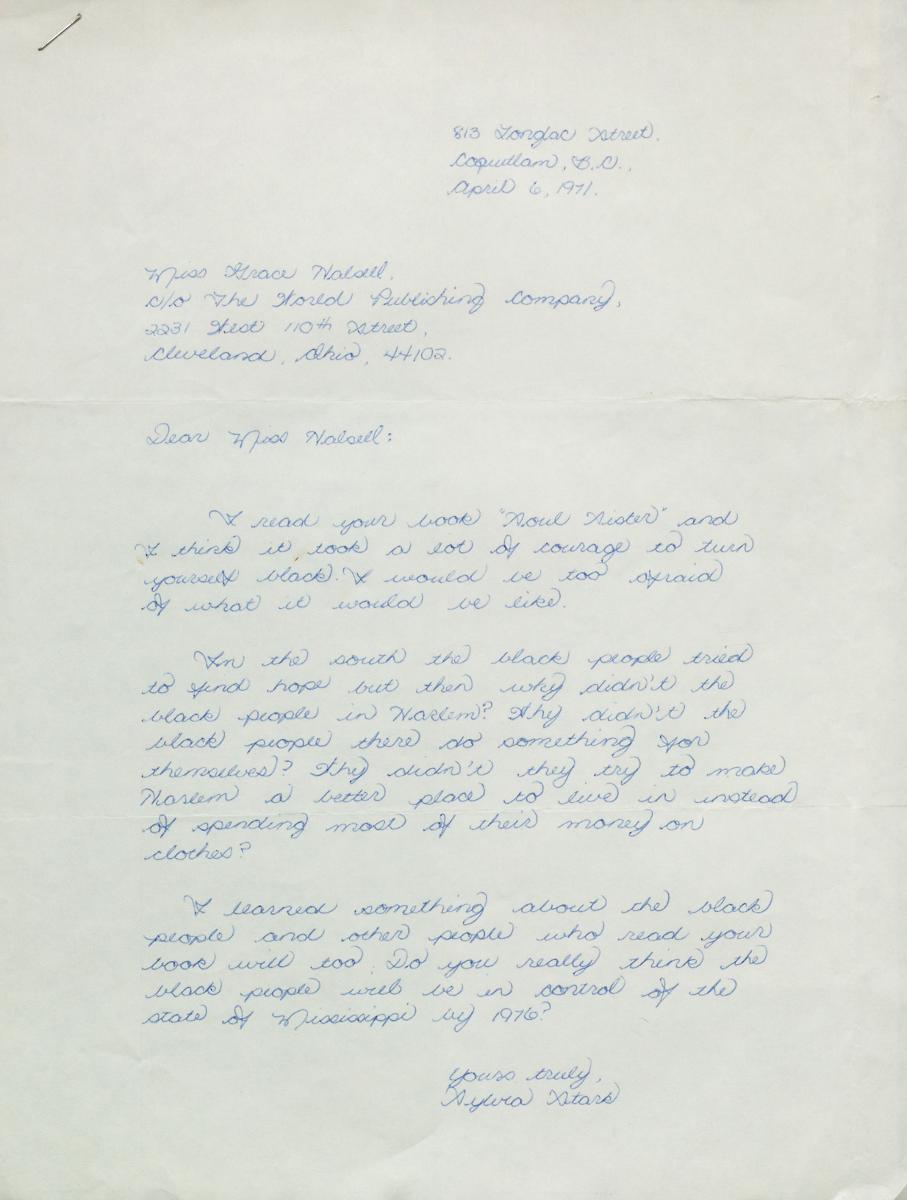 813 Longlac Street.
Coquitlam, B.C.,
April 6, 1971.
Miss Grace Halsell,
c/o The World Publishing Company,
2231 West 110th Street,
Cleveland, Ohio, 44102.
Dear Miss Halsell:
I read your book "Soul Sister" and
I think it took a lot of courage to turn
yourself black. I would be too afraid
of what it would be like.
In the south the black people tried
to find hope but then why didn't the
black people in Harlem? Why didn't the
black people there do something for
themselves? Why didn't they try to make
Harlem a better place to live in instead
of spending most of their money on
clothes?
I learned something about the black
people and other people who read your
book will too. Do you really think the
black people will be in control of the
state of Mississippi by 1976?
Yours truly,
Sylvia Stark